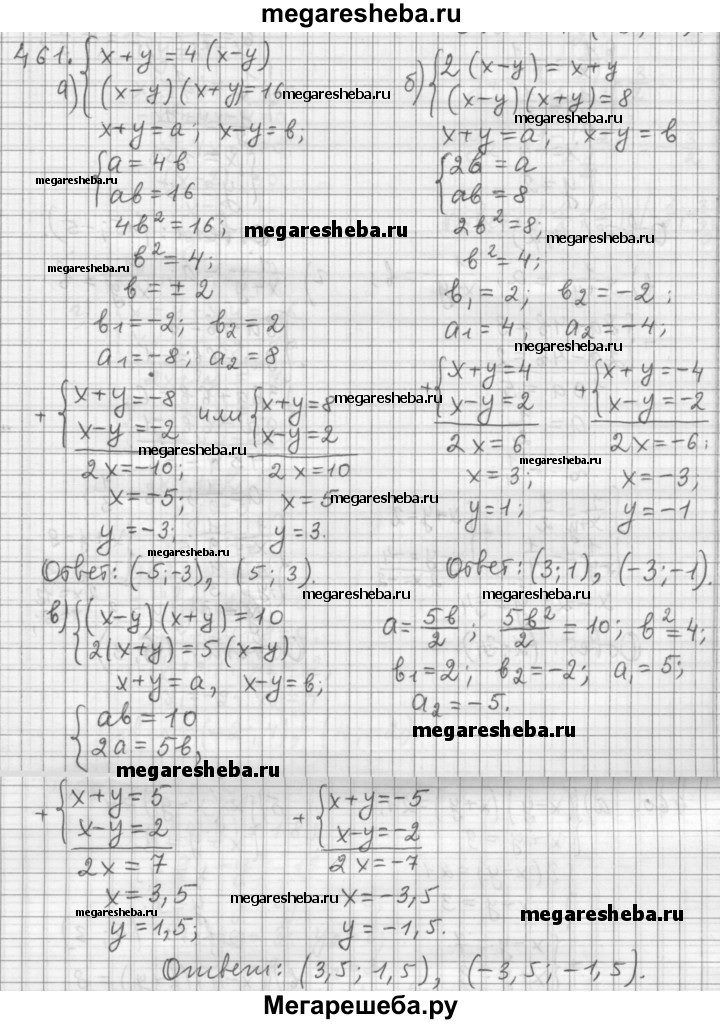 megaresheba.ru
461. { x + y = 4 (x-y)
а) (x-y) (x+y) = 16 megaresheba.ru
x+y = a; x-y = в;
{ a = 4в
megaresheba.ru
aв = 16
4в² = 16; megaresheba.ru
в² = 4;
megaresheba.ru
в = ± 2
в₁ = -2; в₂ = 2
a₁ = -8; a₂ = 8
+ { x+y = -8
x-y = -2
или { x+y = 8 megaresheba.ru
x-y = 2
megaresheba.ru
2x = -10; 2x = 10
x = -5; x = 5 megaresheba.ru
y = -3; y = 3.
megaresheba.ru
Ответ: (-5; -3), (5; 3).
б) { 2 (x-y) = x+y
(x-y) (x+y) = 8
megaresheba.ru
x+y = a, x-y = в
{ 2в = a
aв = 8
2в² = 8;
megaresheba.ru
в² = 4;
в₁ = 2; в₂ = -2;
a₁ = 4, a₂ = -4;
megaresheba.ru
+ { x+y = 4 + { x+y = -4
x-y = 2 x-y = -2
2x = 6 2x = -6;
megaresheba.ru
x = 3; x = -3,
y = 1; y = -1
Ответ: (3; 1), (-3; -1).
megaresheba.ru
в) { (x-y) (x+y) = 10
2(x+y) = 5 (x-y)
x+y = a, x-y = в;
{ aв = 10
2a = 5в,
megaresheba.ru
a = 5в/2; 5в²/2 = 10; в² = 4;
в₁ = 2; в₂ = -2; a₁ = 5;
a₂ = -5.
megaresheba.ru
+ { x+y = 5 + { x+y = -5
x-y = 2 x-y = -2
2x = 7 2x = -7
x = 3,5 megaresheba.ru x = -3,5
megaresheba.ru megaresheba.ru
y = 1,5; y = -1,5.
Ответ: (3,5; 1,5), (-3,5; -1,5).
Мегарешеба.ру